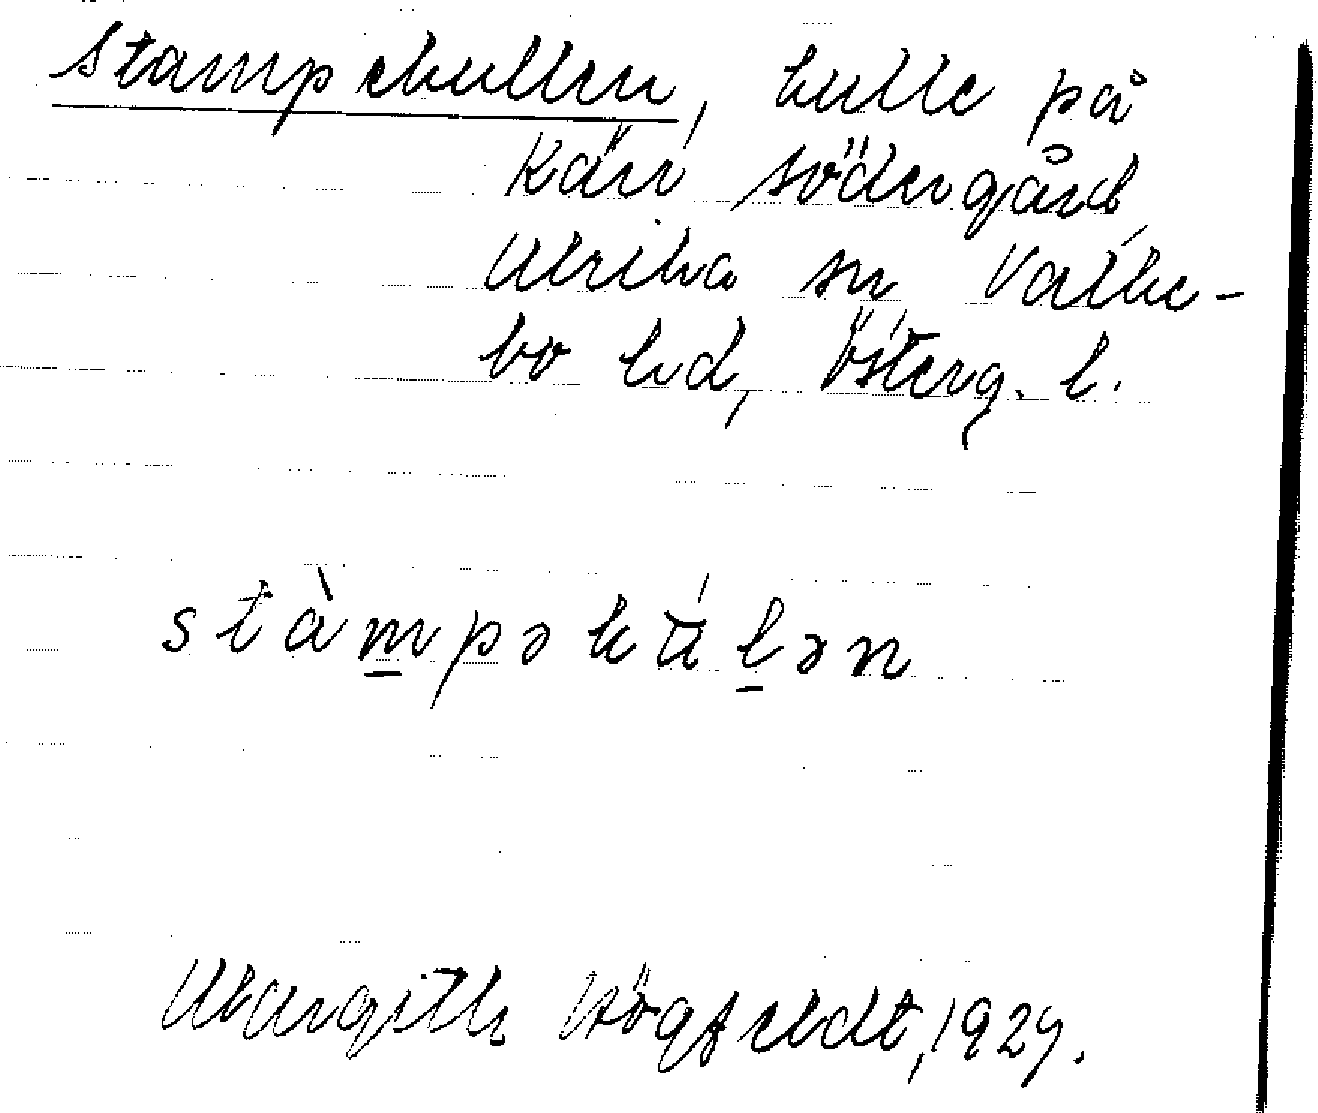 Stampekullen, kulle på
Kärr södergård,
Ulrika sn Valke-
bo hd, Österg. l.
stàmpəkúlən
Margith Högfeldt, 1929.